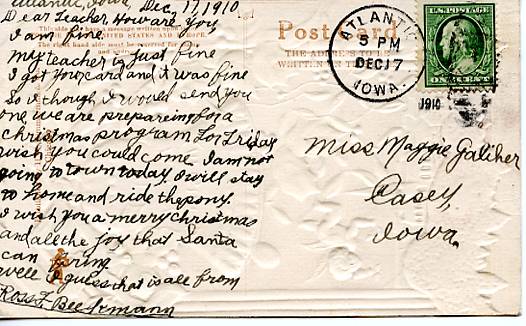 Atlantic, Iowa, Dec, 17, 1910.
Dear teacher, How are you,
I am fine.
My teacher is just fine
I got your card and it was fine
So I though I would send you
one we are prepareing for a
christmas program for friday
wish you could come I am not
going to town today. I will stay
to home and ride the pony.
I wish you a merry christmas
and all the joy that Santa
can bring.
well I guess that is all from
Ross F. Beekmann
This side may have a message written upon it
UNITED STATES AND EUROPE.
The right hand side must be
Postcard
THE ADDRESS TO BE
WRITTEN ON THIS
ATLANTIC
5 PM
DEC 17
IOWA.
1910
Miss Maggie Galliher
Casey,
Iowa.